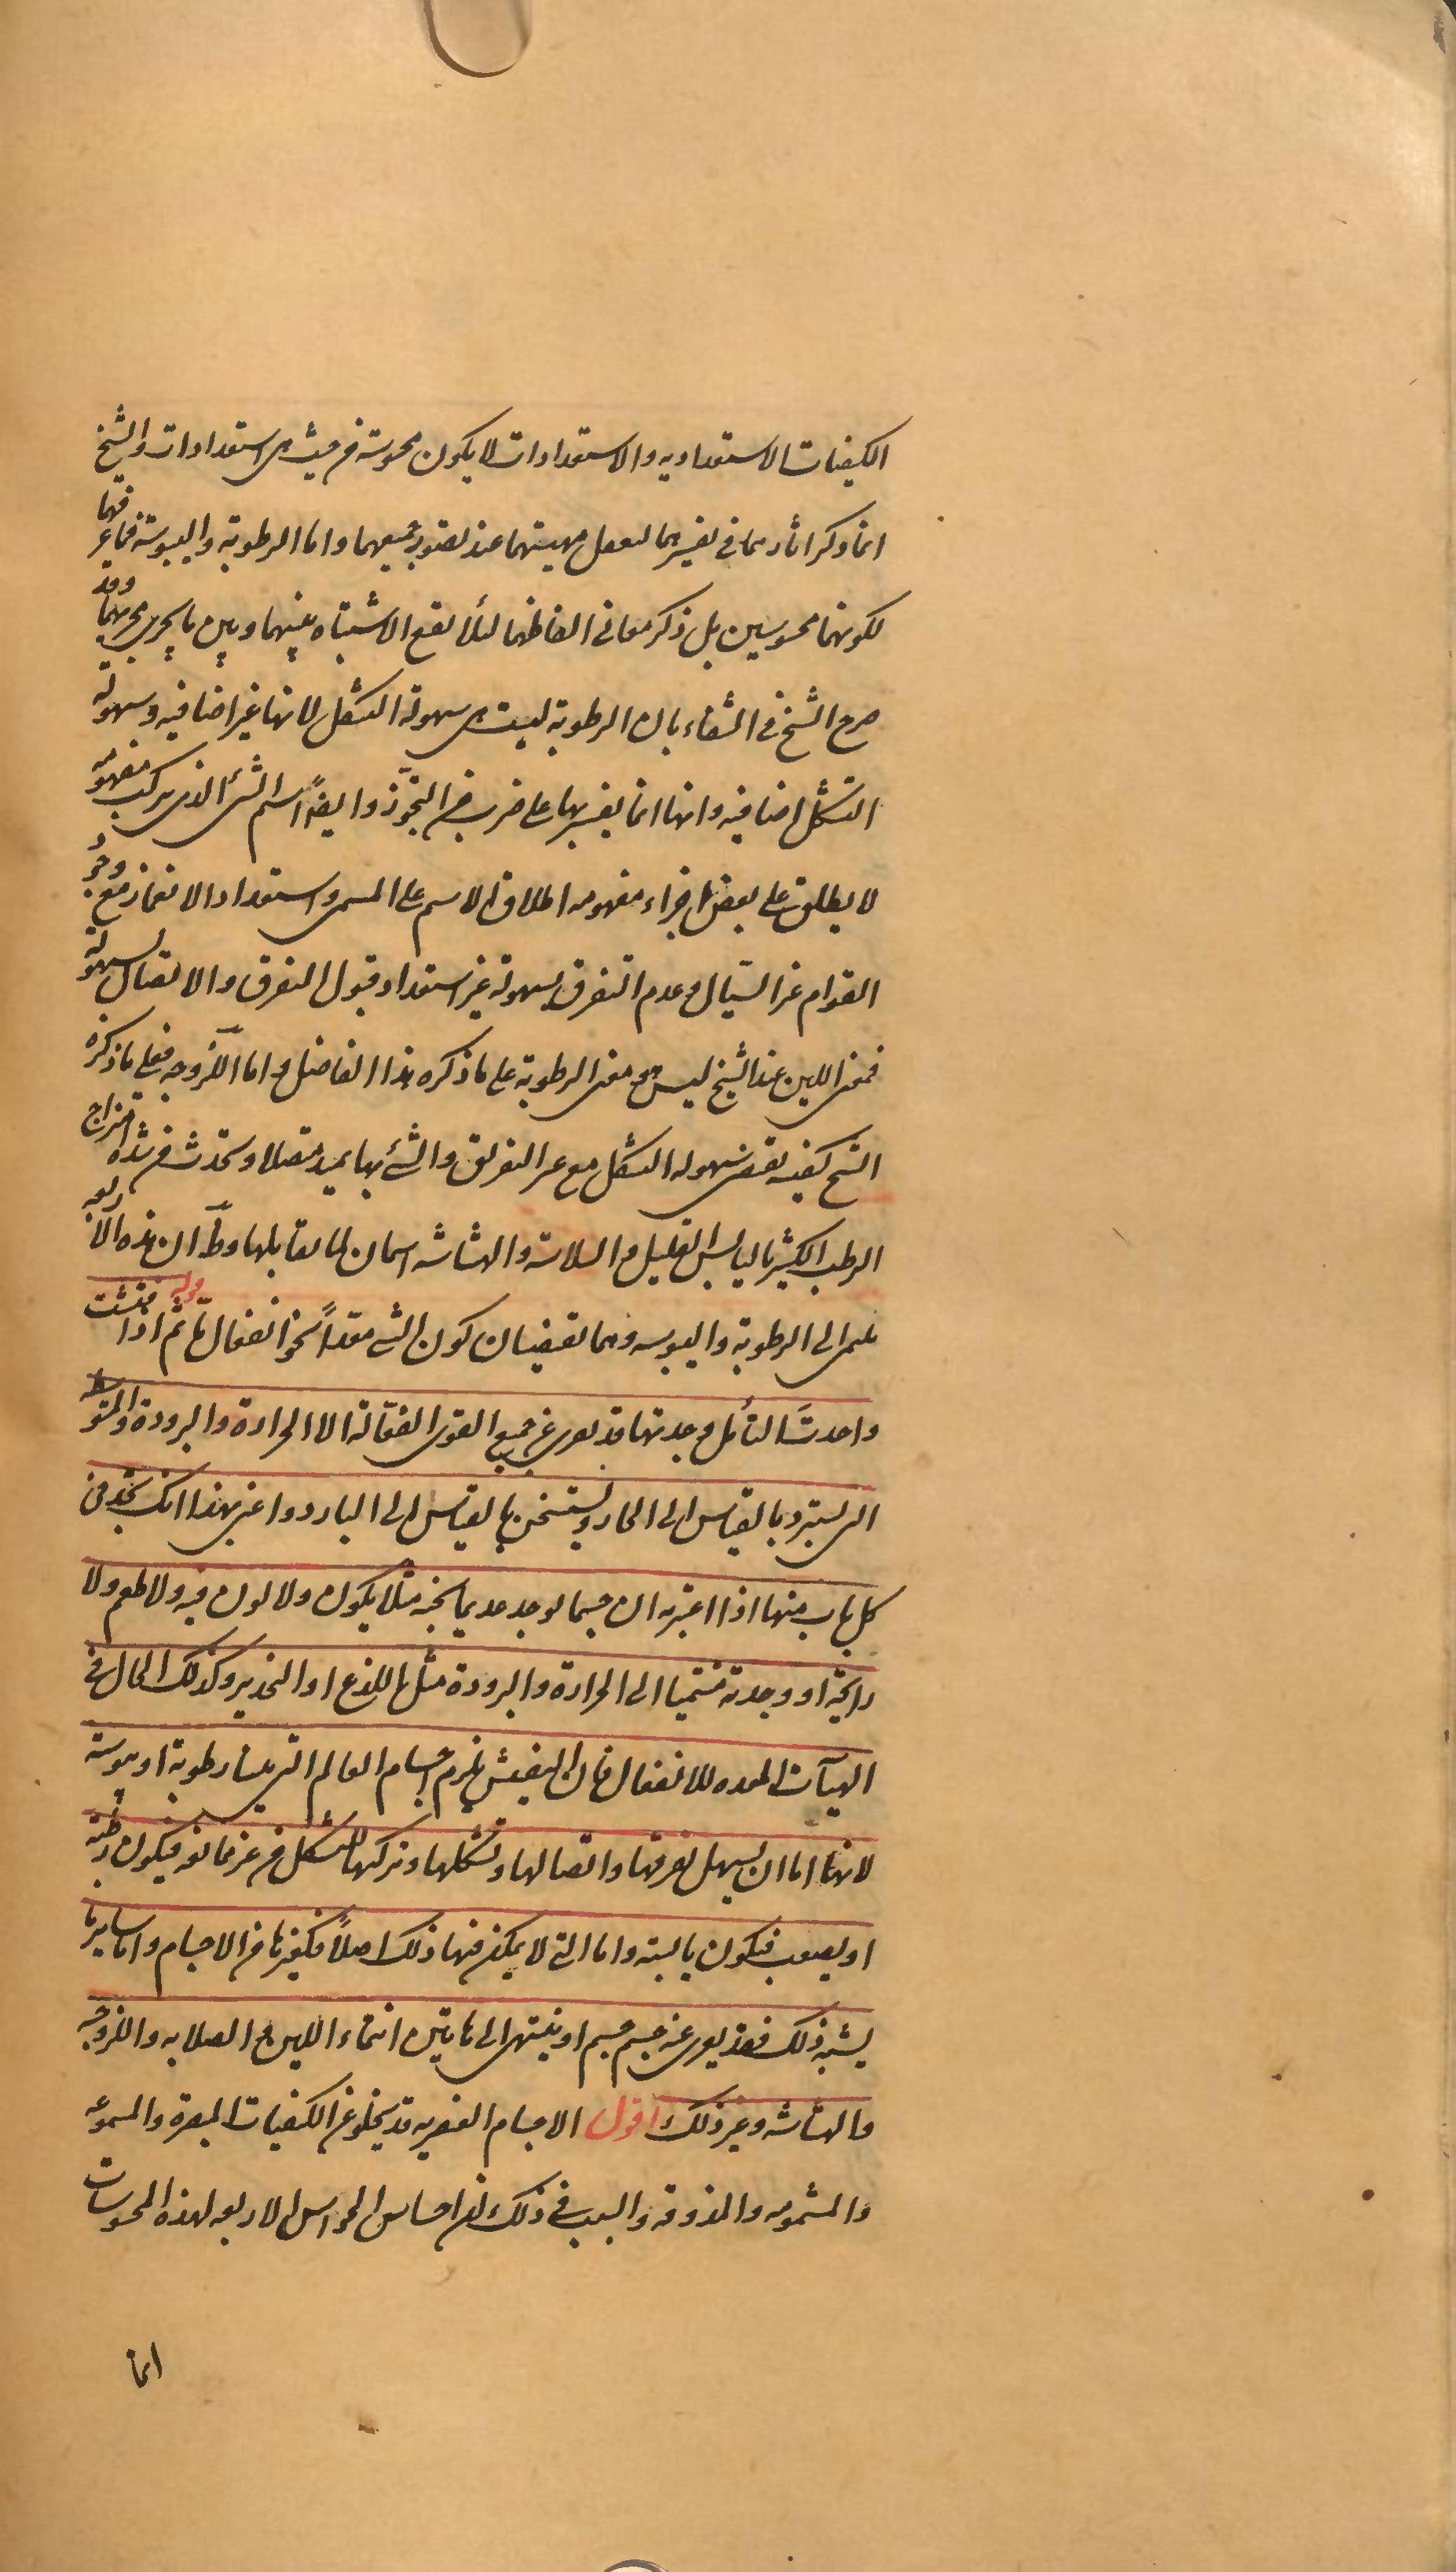 الكيفيات الاستعدادية والاستعدادات لا يكون محسوسة من حيث هى استعدادات والشيخ
انما ذكر اثارهما فى تفسيرهما لتعقل مهيتهما عند تصور جميعهما واما الرطوبة واليبوسة فما عرفهما
لكونهما محسوسين بل ذكر معانى الفاظهما لئلا يقع الاشتباه بينهما وبين ما يجرى مجريهما وقد
صرح الشيخ فى الشفاء بان الرطوبة ليست هى سهولة التشكل لانها غير اضافيه وسهولة
التشكل اضافيه وانها انما يفسر بها على ضرب من التجوّز وايضًا اسم الشئ الذى يتركب مفهومه
لا يطلق على بعض اجزاء مفهومه اطلاق الاسم على المسمى واستعداد الانغماز مع وجود
القوام غير السّيال وعدم التفرق بسهولة غير استعداد قبول التفرق والاتصال بسهولة
فمعنى اللين عند الشيخ ليس هو معنى الرطوبة على ما ذكره هذا الفاضل واما اللّزوجه فعلى ما ذكره
الشيخ كيفيه تقتضى سهوله التشكل مع عسر التفريق والشئ بها يمتد متصلا وتحدث من شدة امتزاج
الرطب الكثير باليابس القليل والسلاسة والهشاشه اسمان لما يقابلها وظّ ان هذه الاربعه
تنتمى الى الرطوبة واليبوسه وهما تقتضيان كون الشئ معدًا نحو انفعال مّا قوله ثم اذا فتشت
واحدثتَ التأمل وجدتها قد تعرى عن جميع القوى الفعّالة الا الحرارة والبرودة والمتوسطه
التى تستبرد بالقياس الى الحار وتستسخن بالقياس الى البارد واعنى بهذا انك تجد فى
كل باب منها اذا اعتبرته ان جسما يوجد عديما لجنسه مثلا يكون ولا لون فيه ولا طعم ولا
رايحة او وجدته منتميا الى الحرارة والبرودة مثل اللذع او التخدير وكذلك الحال فى
الهيآت المعده للانفعال فان التفتيش يلزم اجسام العالم التى تلينا رطوبة او يبوسة
لانها اما ان يسهل تفرقها واتصالها وتشكلها وتركها للتشكل من غير ممانعه فيكون رطبة
او يصعب فيكون يابسة واما التى لا يمكن فيها ذلك اصلًا فكغيرها من الاجسام واما ساير ما
يشبه ذلك فقد يعرى عنه جسم جسم او ينتهى الى هاتين انتماء اللين والصلابه واللزوجه
والهشاشه وغير ذلك اقول الاجسام العنصريه قد يخلو عن الكيفيات المبصرة والمسموعه
والمشمومه والمذوقه والسبب فى ذلك ان احساس الحواس الاربعه لهذه المحسوسات
انما